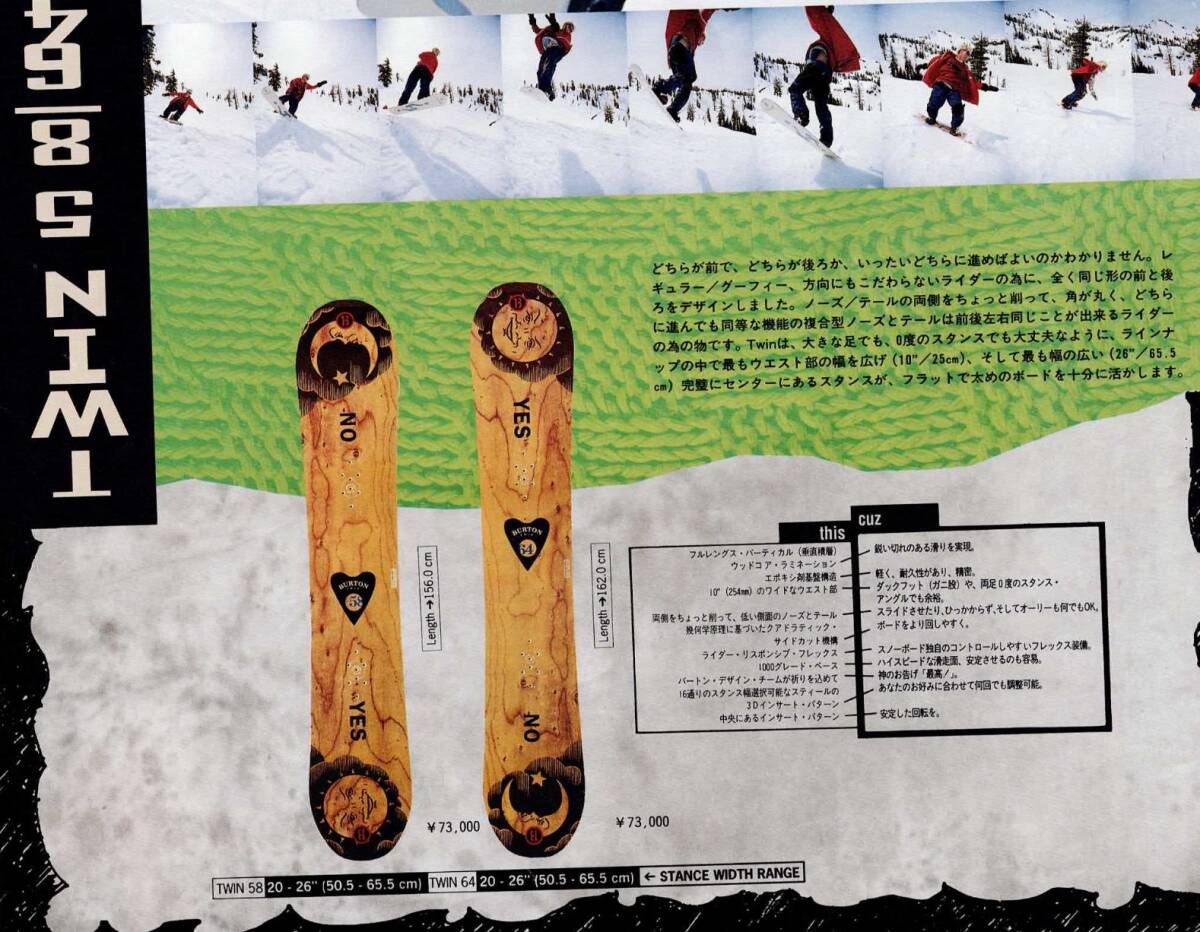 TWIN 58/64
どちらが前で、どちらが後ろか、いったいどちらに進めばよいのかわかりません。レ
ギュラー／グーフィー、方向にもこだわらないライダーの為に、全く同じ形の前と後
ろをデザインしました。ノーズ／テールの両側をちょっと削って、角が丸く、どちら
に進んでも同等な機能の複合型ノーズとテールは前後左右同じことが出来るライダー
の為の物です。Twinは、大きな足でも、0度のスタンスでも大丈夫なように、ラインナ
ップの中で最もウエスト部の幅を広げ(10"／25cm)、そして最も幅の広い(26"／65.5
cm)完璧にセンターにあるスタンスが、フラットで太めのボードを十分に活かします。
NO
BURTON
58
YES
YES
BURTON
64
NO
Length→156.0 cm
Length→162.0 cm
¥73,000
¥73,000
this
cuz
フルレングス・バーティカル(垂直積層)
ウッドコア・ラミネーション
エポキシ剤基盤構造
10"(254mm)のワイドなウエスト部
両側をちょっと削って、低い側面のノーズとテール
幾何学原理に基づいたクアドラティック・
サイドカット機構
ライダー・リスポンシブ・フレックス
1000グレード・ベース
バートン・デザイン・チームが祈りを込めて
16通りのスタンス幅選択可能なスティールの
3Dインサート・パターン
中央にあるインサート・パターン
鋭い切れのある滑りを実現。
軽く、耐久性があり、精密。
ダックフット(ガニ股)や、両足0度のスタンス・
アングルでも余裕。
スライドさせたり、ひっかからず、そしてオーリーも何でもOK。
ボードをより回しやすく。
スノーボード独自のコントロールしやすいフレックス装備。
ハイスピードな滑走面、安定させるのも容易。
神のお告げ「最高！」。
あなたのお好みに合わせて何回でも調整可能。
安定した回転を。
TWIN 58 20 - 26" (50.5 - 65.5 cm) TWIN 64 20 - 26" (50.5 - 65.5 cm) ← STANCE WIDTH RANGE